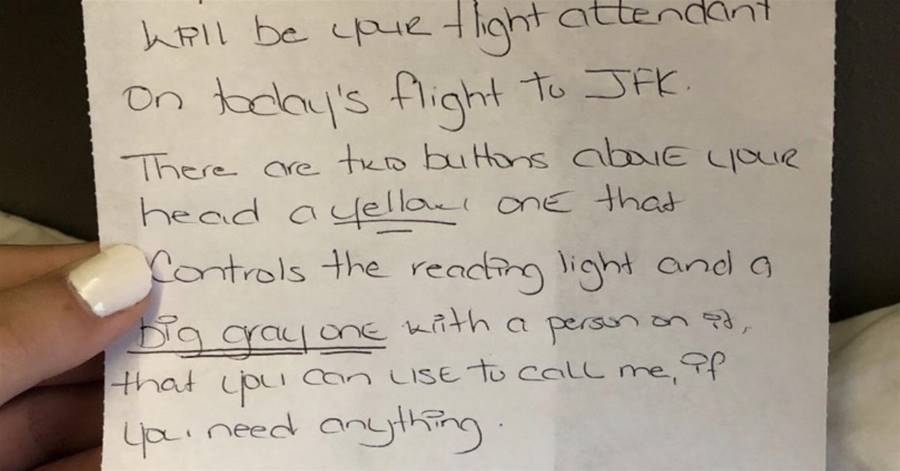 will be your flight attendant
on today's flight to JFK.
There are two buttons above your
head a yellow one that
Controls the reading light and a
big gray one with a person on it,
that you can use to call me, if
you need anything.